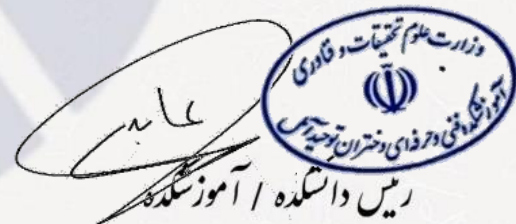 وزارت علوم تحقیقات و فناوری
آموزشکده فنی و حرفه‌ای دختران توحید آمل
عابدی
رییس دانشکده / آموزشکده